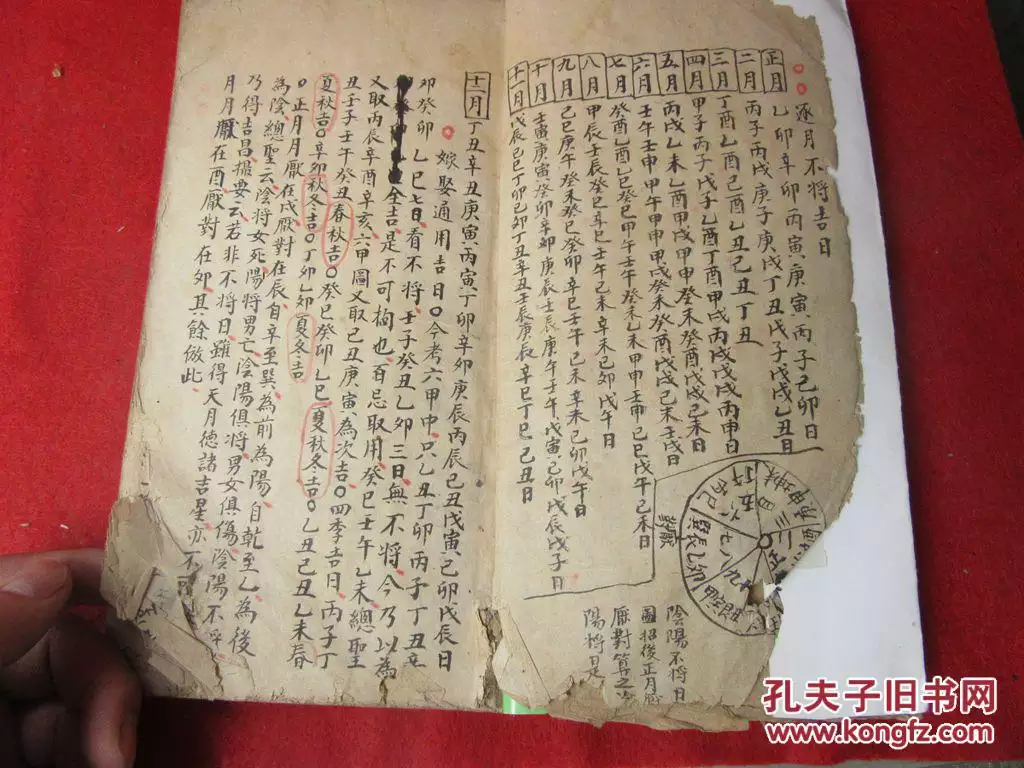 逐月不将吉日
正月 乙卯辛卯丙寅庚寅丙子己卯日
二月 丙子丙戌庚子庚戌丁丑戊子戊戌乙丑日
三月 丁酉乙酉己酉乙丑己丑丁丑
四月 甲子丙子戊子乙酉丁酉甲戌丙戌戊戌丙申日
五月 丙戌乙未乙酉甲戌甲申癸未癸酉戊戌己未日
六月 壬午壬申甲午甲申甲戌癸未癸酉戊戌己未壬戌日
七月 癸酉乙酉乙巳癸巳甲午壬午癸未乙未甲申壬申己巳戊午己未日
八月 甲辰壬辰癸巳辛巳壬午己未辛未己卯戊午日
九月 己巳庚午癸未癸巳癸卯辛巳壬午己未辛未己卯戊午日
十月 壬寅庚寅癸卯辛卯庚辰壬辰庚午壬午戊寅己卯戊辰戊子日
十一月 戊辰己巳丁卯己卯丁丑辛丑壬辰庚辰辛巳丁巳己丑日
厭對
陰陽不将日
圖招後正月厭
厭對算之
陽将是
十二月 丁丑辛丑庚寅丙寅丁卯辛卯庚辰丙辰己丑戊寅己卯戊辰日
嫁娶通用吉日〇今考六甲中只乙丑丁卯丙子丁丑辛
卯癸卯乙巳七日看不将壬子癸丑乙卯三日無不将今乃以為
全吉是不可拘也百忌取用癸巳壬午乙未總聖
又取丙辰辛酉辛亥六甲圖又取己丑庚寅為次吉〇四季吉日丙子丁
丑壬子壬午癸丑春秋吉〇癸巳癸卯乙巳夏秋冬吉〇乙丑己丑乙未春
夏秋吉〇辛卯秋冬吉〇丁卯乙卯夏冬吉
〇正月月厭在戌厭對在辰自辛至巽為前為陽自乾至乙為後
為陰總聖云陰将女死陽将男亡陰陽俱将男女俱傷陰陽不
乃得吉昌撮要云若非不将日雖得天月德諸吉星亦不
月月厭在酉厭對在卯其餘倣此
孔夫子旧书网
www.kongfz.com